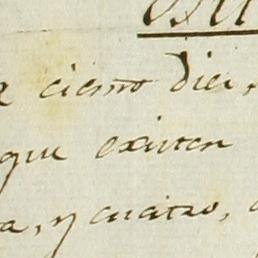 ciento diez,
que existen
a, y cuatro,